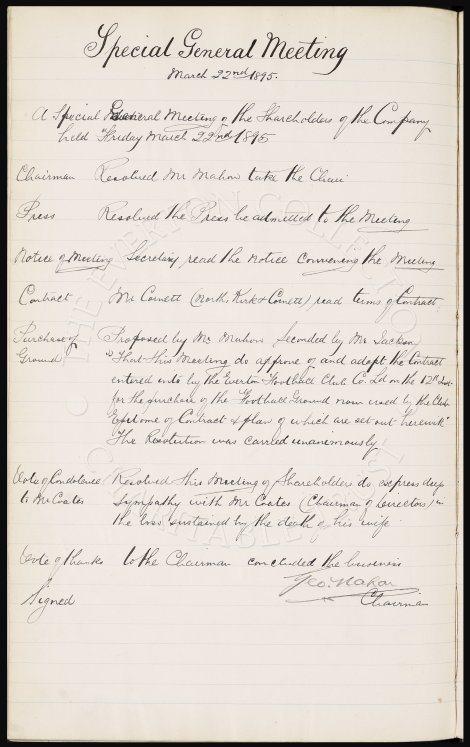 Special General Meeting
March 22nd 1895.
A Special General Meeting of the Shareholders of the Company
held Friday March 22nd 1895
Chairman Resolved Mr Mahon take the Chair
Press Resolved the Press be admitted to the Meeting
Notice of Meeting Secretary read the notice convening the Meeting
Contract Mr Cornett (North, Kirk & Cornett) read terms of Contract
Purchase of Proposed by Mr Mahon Seconded by Mr Jackson
Ground "That this Meeting do approve of and adopt the Contract
entered into by the Everton Football Club Co. Ld on the 12th Inst
for the purchase of the Football Ground now used by the Club
Epitome of Contract & plan of which are set out herewith"
The Resolution was carried unanimously
Vote of Condolence Resolved this Meeting of Shareholders do express deep
to Mr Coates sympathy with Mr Coates (Chairman of Directors) in
the loss sustained by the death of his wife
Vote of thanks to the Chairman concluded the business
Geo. Mahon
Signed Chairman
THE EVERTON COLLECTION
CHARITABLE TRUST